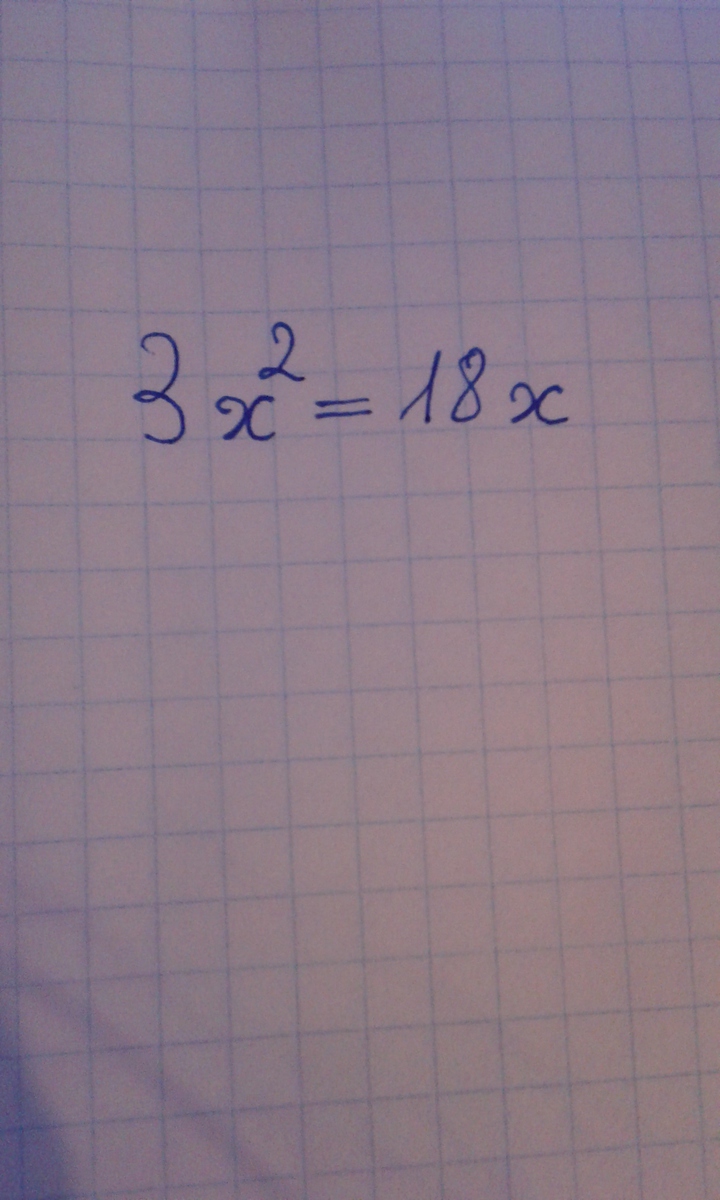 3x² = 18x